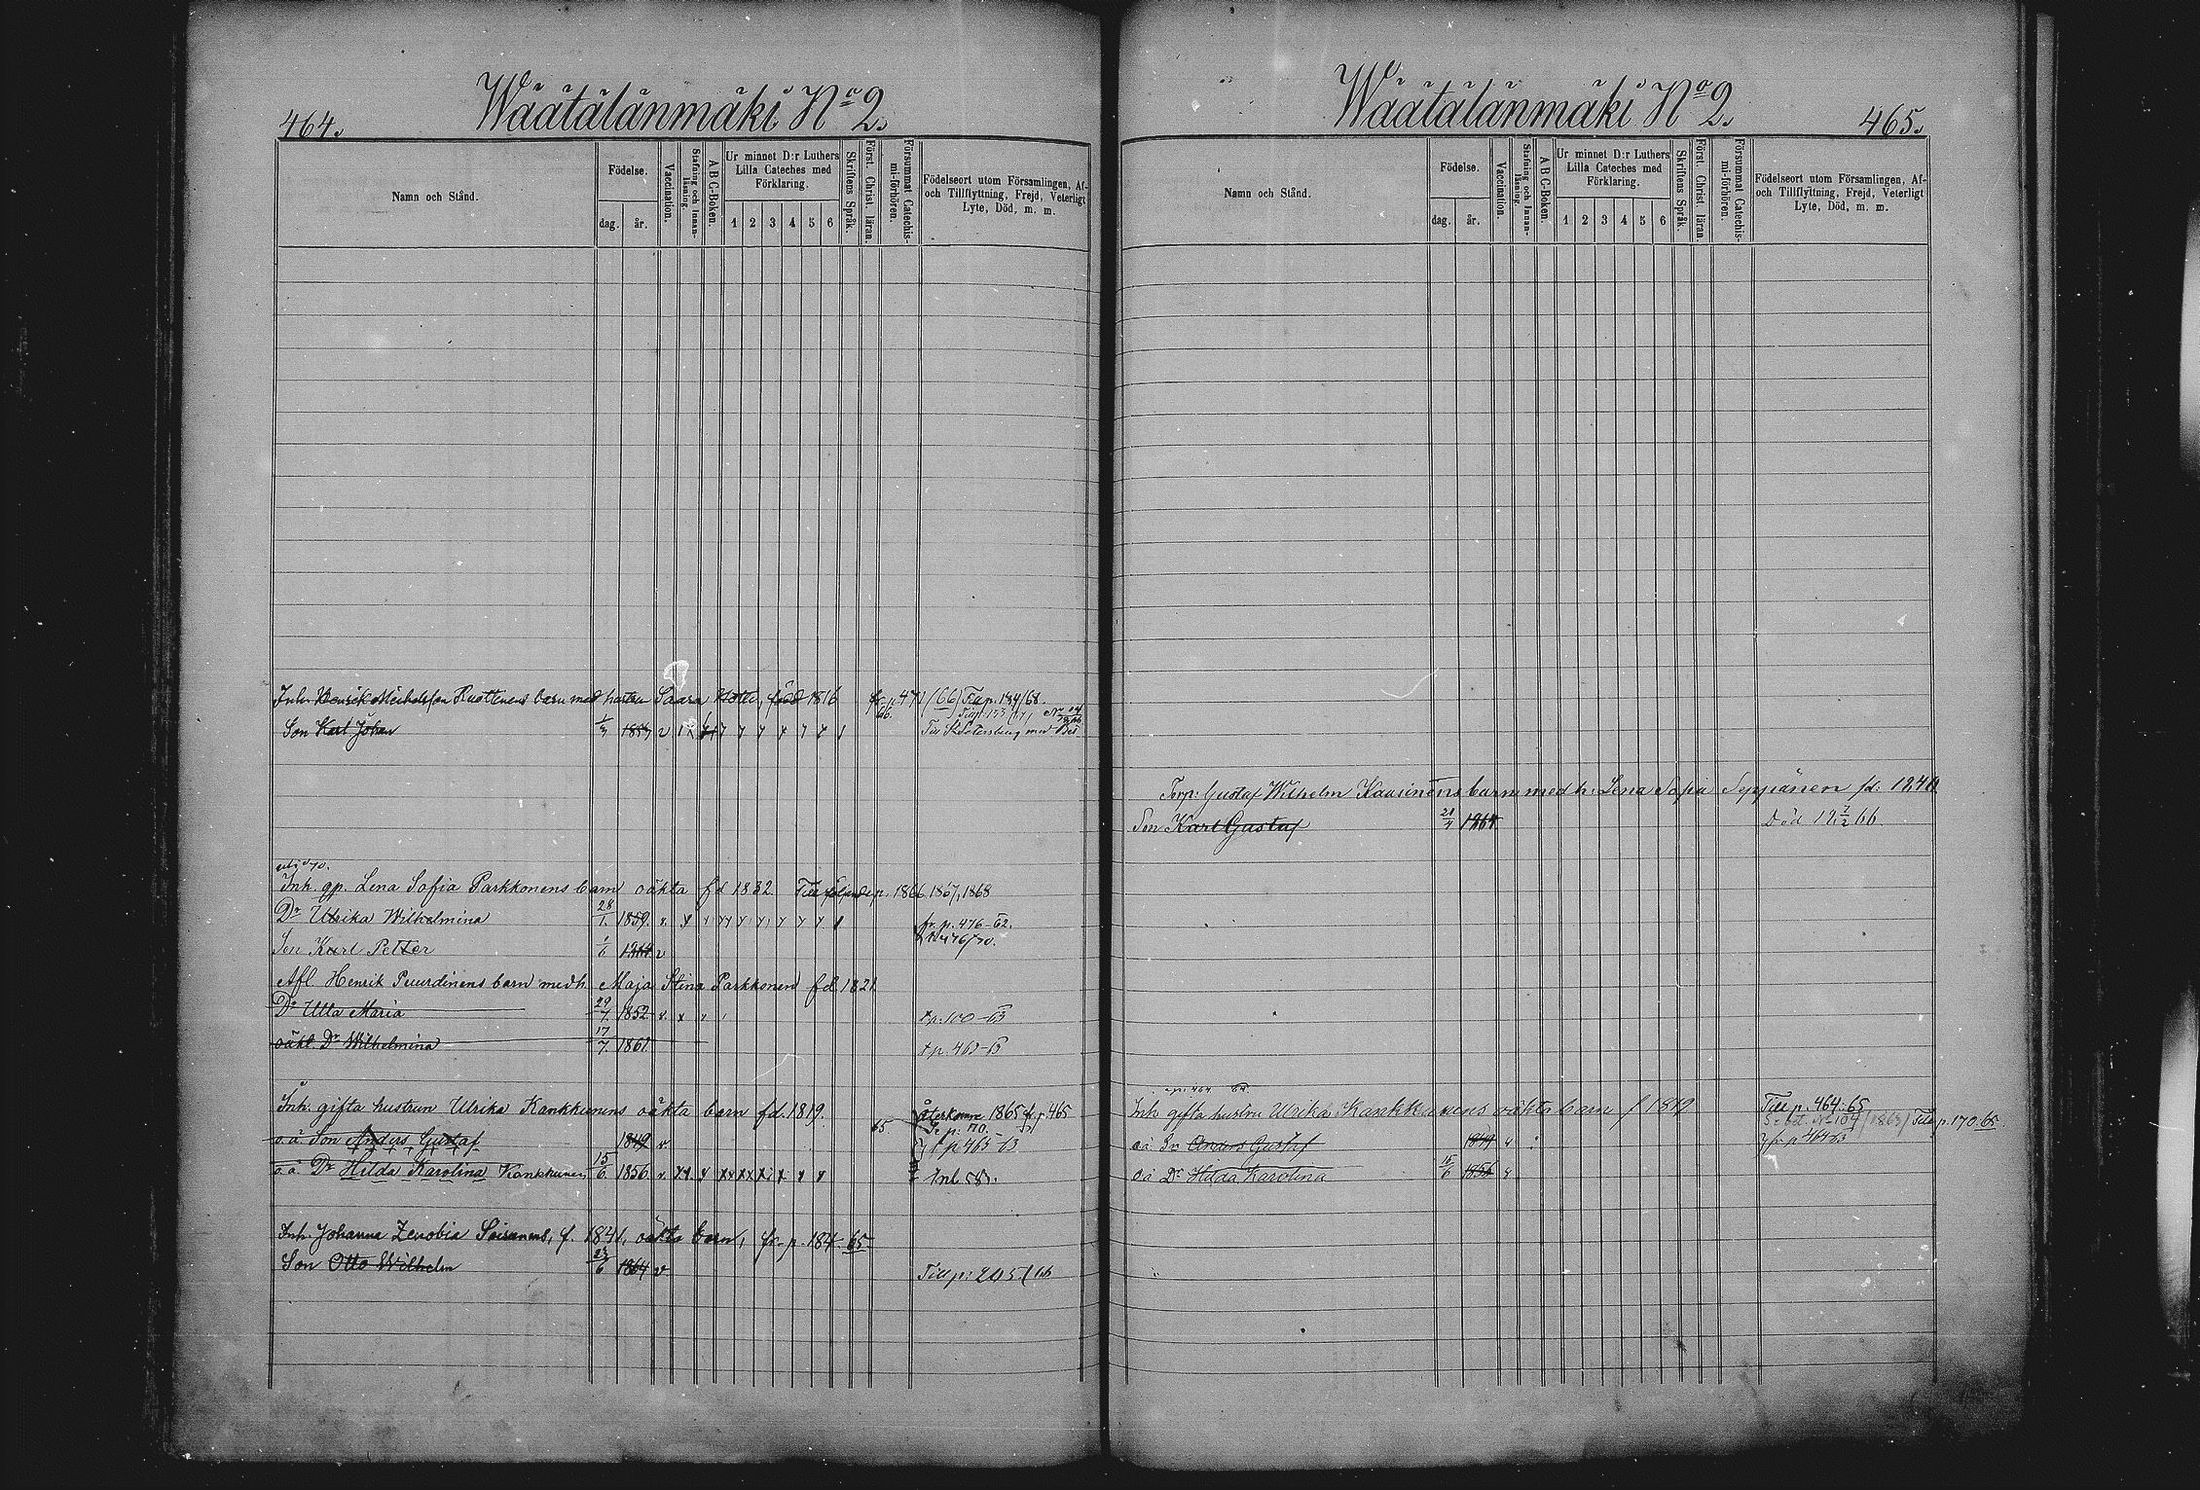 464.
Wäätälänmäki No 2.
Namn och Stånd.
Födelse.
dag.
år.
Vaccination.
Stafning och Innanläsning.
A B C-Boken.
Ur minnet D:r Luthers Lilla Cateches med Förklaring.
1 2 3 4 5 6
Skriftens Språk.
Först. Christ. läran.
Försummat Catechismi-förhören.
Födelseort utom Församlingen, Af- och Tillflyttning, Frejd, Veterligt Lyte, Död, m. m.
Inh. Henrik Ruottinens barn med hustru Saara född 1816 471 (66) Till p. 184/68.
Son Karl Johan 1/3 v Till St Petersburg med
Inh. gp. Lena Sofia Parkkonens barn oäkta fd 1832 p. 1866, 1867, 1868
Dr Ulrika Wilhelmina 28/1. 1859. v. fr. p. 476-62.
Son Karl Petter 1/6 v
Afl. Henrik Puurdinens barn med h. Maja Stina Parkkonen fd. 1821
Dr Ulla Maria 29/7. 1852 v. x t p. 100-63
oäkt. Dr Wilhelmina 17/7. 1861. t p. 463-63
Inh. gifta hustrun Ulrika Kankkunens oäkta barn fd. 1819. Återkomne 1865 fr. p. 465
o.ä. Son Anders Gustaf 1849 v. 65 p 465-63
o.ä. Dr Hilda Karolina Kankkunen 15/6. 1856. v.
Inh. Johanna Zenobia Soisanens, f. 1841, oäkta barn, fr. p. 184-65
Son Otto Wilhelm 23/6 1864 v Till p: 205/66
Wäätälänmäki No 2.
465.
Namn och Stånd.
Födelse.
dag.
år.
Vaccination.
Stafning och Innanläsning.
A B C-Boken.
Ur minnet D:r Luthers Lilla Cateches med Förklaring.
1 2 3 4 5 6
Skriftens Språk.
Först. Christ. läran.
Försummat Catechismi-förhören.
Födelseort utom Församlingen, Af- och Tillflyttning, Frejd, Veterligt Lyte, Död, m. m.
Torp: Gustaf Wilhelm Kaasinens barn med h: Lena Sofia Seppänen fd: 1840
Son Karl Gustaf 1864 Död 66
Inh gifta hustru Ulrika Kankkunens oäkta barn f 1819 Till p. 464:65
Till p. 170.65.
oä Sn Anders Gustaf 1849 fr p 464-63
oä Dr Hilda Karolina 15/6 1856